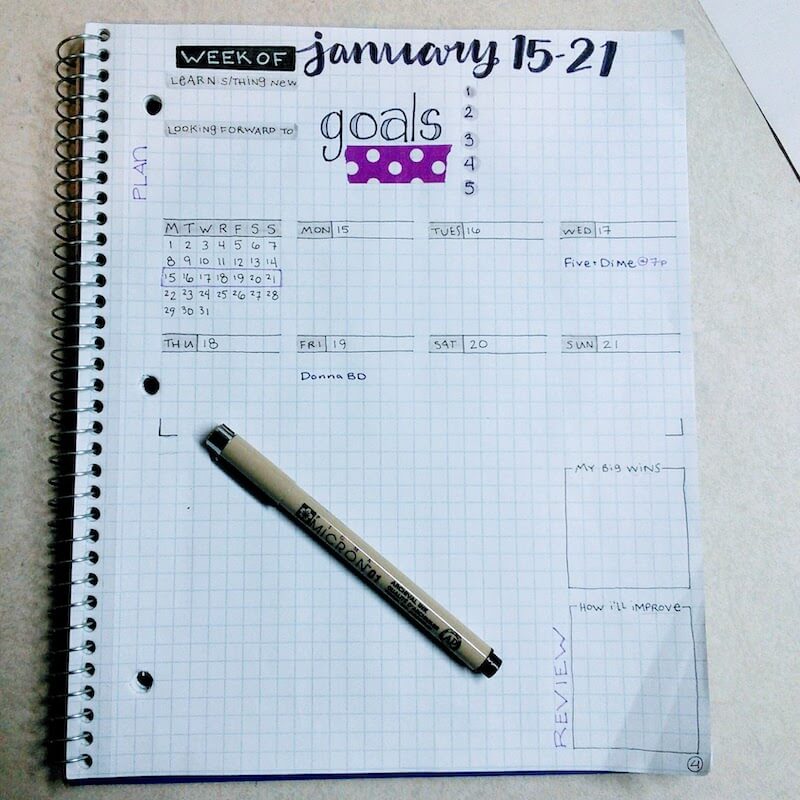 WEEK OF january 15-21
LEARN S/THING NEW
LOOKING FORWARD TO
PLAN
goals
1
2
3
4
5
M T W R F S S
1 2 3 4 5 6 7
8 9 10 11 12 13 14
15 16 17 18 19 20 21
22 23 24 25 26 27 28
29 30 31
MON 15
TUES 16
WED 17
Five+Dime@7p
THU 18
FRI 19
Donna BD
SAT 20
SUN 21
MY BIG WINS
HOW I'LL IMPROVE
REVIEW
MICRON 01
ARCHIVAL INK
4